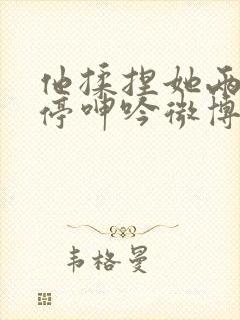 他揉捏她两
停呻吟微博
韦格曼